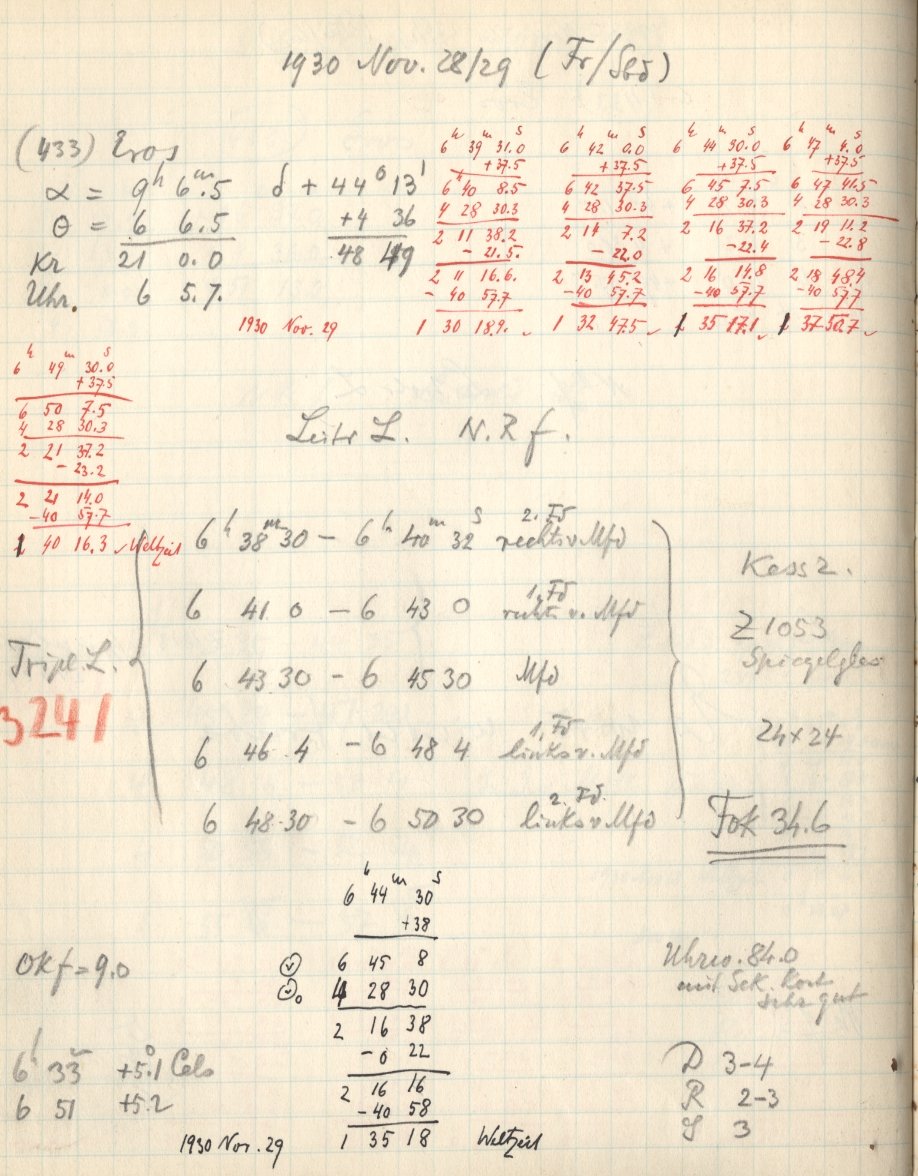 1930 Nov. 28/29 (Fr/Sbd)
(433) Eros
α = 9h 6m.5 δ + 44° 13'
θ = 6 6.5 +4 36
Kr 21 0.0 48 49
Uhr. 6 5.7.
h m s h m s h m s h m s
6 39 31.0 6 42 0.0 6 44 30.0 6 47 4.0
+37.5 +37.5 +37.5 +37.5
6 40 8.5 6 42 37.5 6 45 7.5 6 47 41.5
4 28 30.3 4 28 30.3 4 28 30.3 4 28 30.3
2 11 38.2 2 14 7.2 2 16 37.2 2 19 11.2
- 21.5. - 22.0 -22.4 - 22.8
2 11 16.6. 2 13 45.2 2 16 14.8 2 18 48.4
- 40 57.7 -40 57.7 -40 57.7 -40 57.7
1930 Nov. 29 1 30 18.9. ✓ 1 32 47.5 ✓ 1 35 17.1 ✓ 1 37 50.7 ✓
h m s
6 49 30.0
+37.5
6 50 7.5
4 28 30.3
2 21 37.2
- 23.2
2 21 14.0
-40 57.7
1 40 16.3 ✓ Weltzeit
Leitr L. N.R f.
6h 38m 30 – 6h 40m 32s 2. Fd rechts v. Mfd
6 41 0 – 6 43 0 1. Fd rechts v. Mfd
6 43 30 – 6 45 30 Mfd
6 46 4 – 6 48 4 1. Fd links v. Mfd
6 48.30 – 6 50 30 2. Fd. links v. Mfd
Tripl L.
3241
Kass 2.
Z 1053
Spiegelglas
24×24
Fok 34.6
h m s
6 44 30
+38
6 45 8
4 28 30
2 16 38
-0 22
2 16 16
-40 58
1930 Nov. 29 1 35 18 Weltzeit
OKf = 9.0
6h 33m +5°.1 Cels
6 51 +5.2
Uhrw. 84.0
mit Sek. Kont
sehr gut
D 3-4
R 2-3
S 3